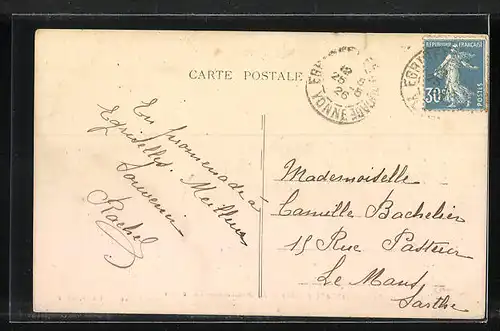 CARTE POSTALE
RÉPUBLIQUE FRANÇAISE
30c
POSTES
YONNE
26
En promenade à
Egriselles. Meilleur
souvenir
Rachel
Mademoiselle
Camille Bachelier
15 Rue Pasteur
Le Mans
Sarthe